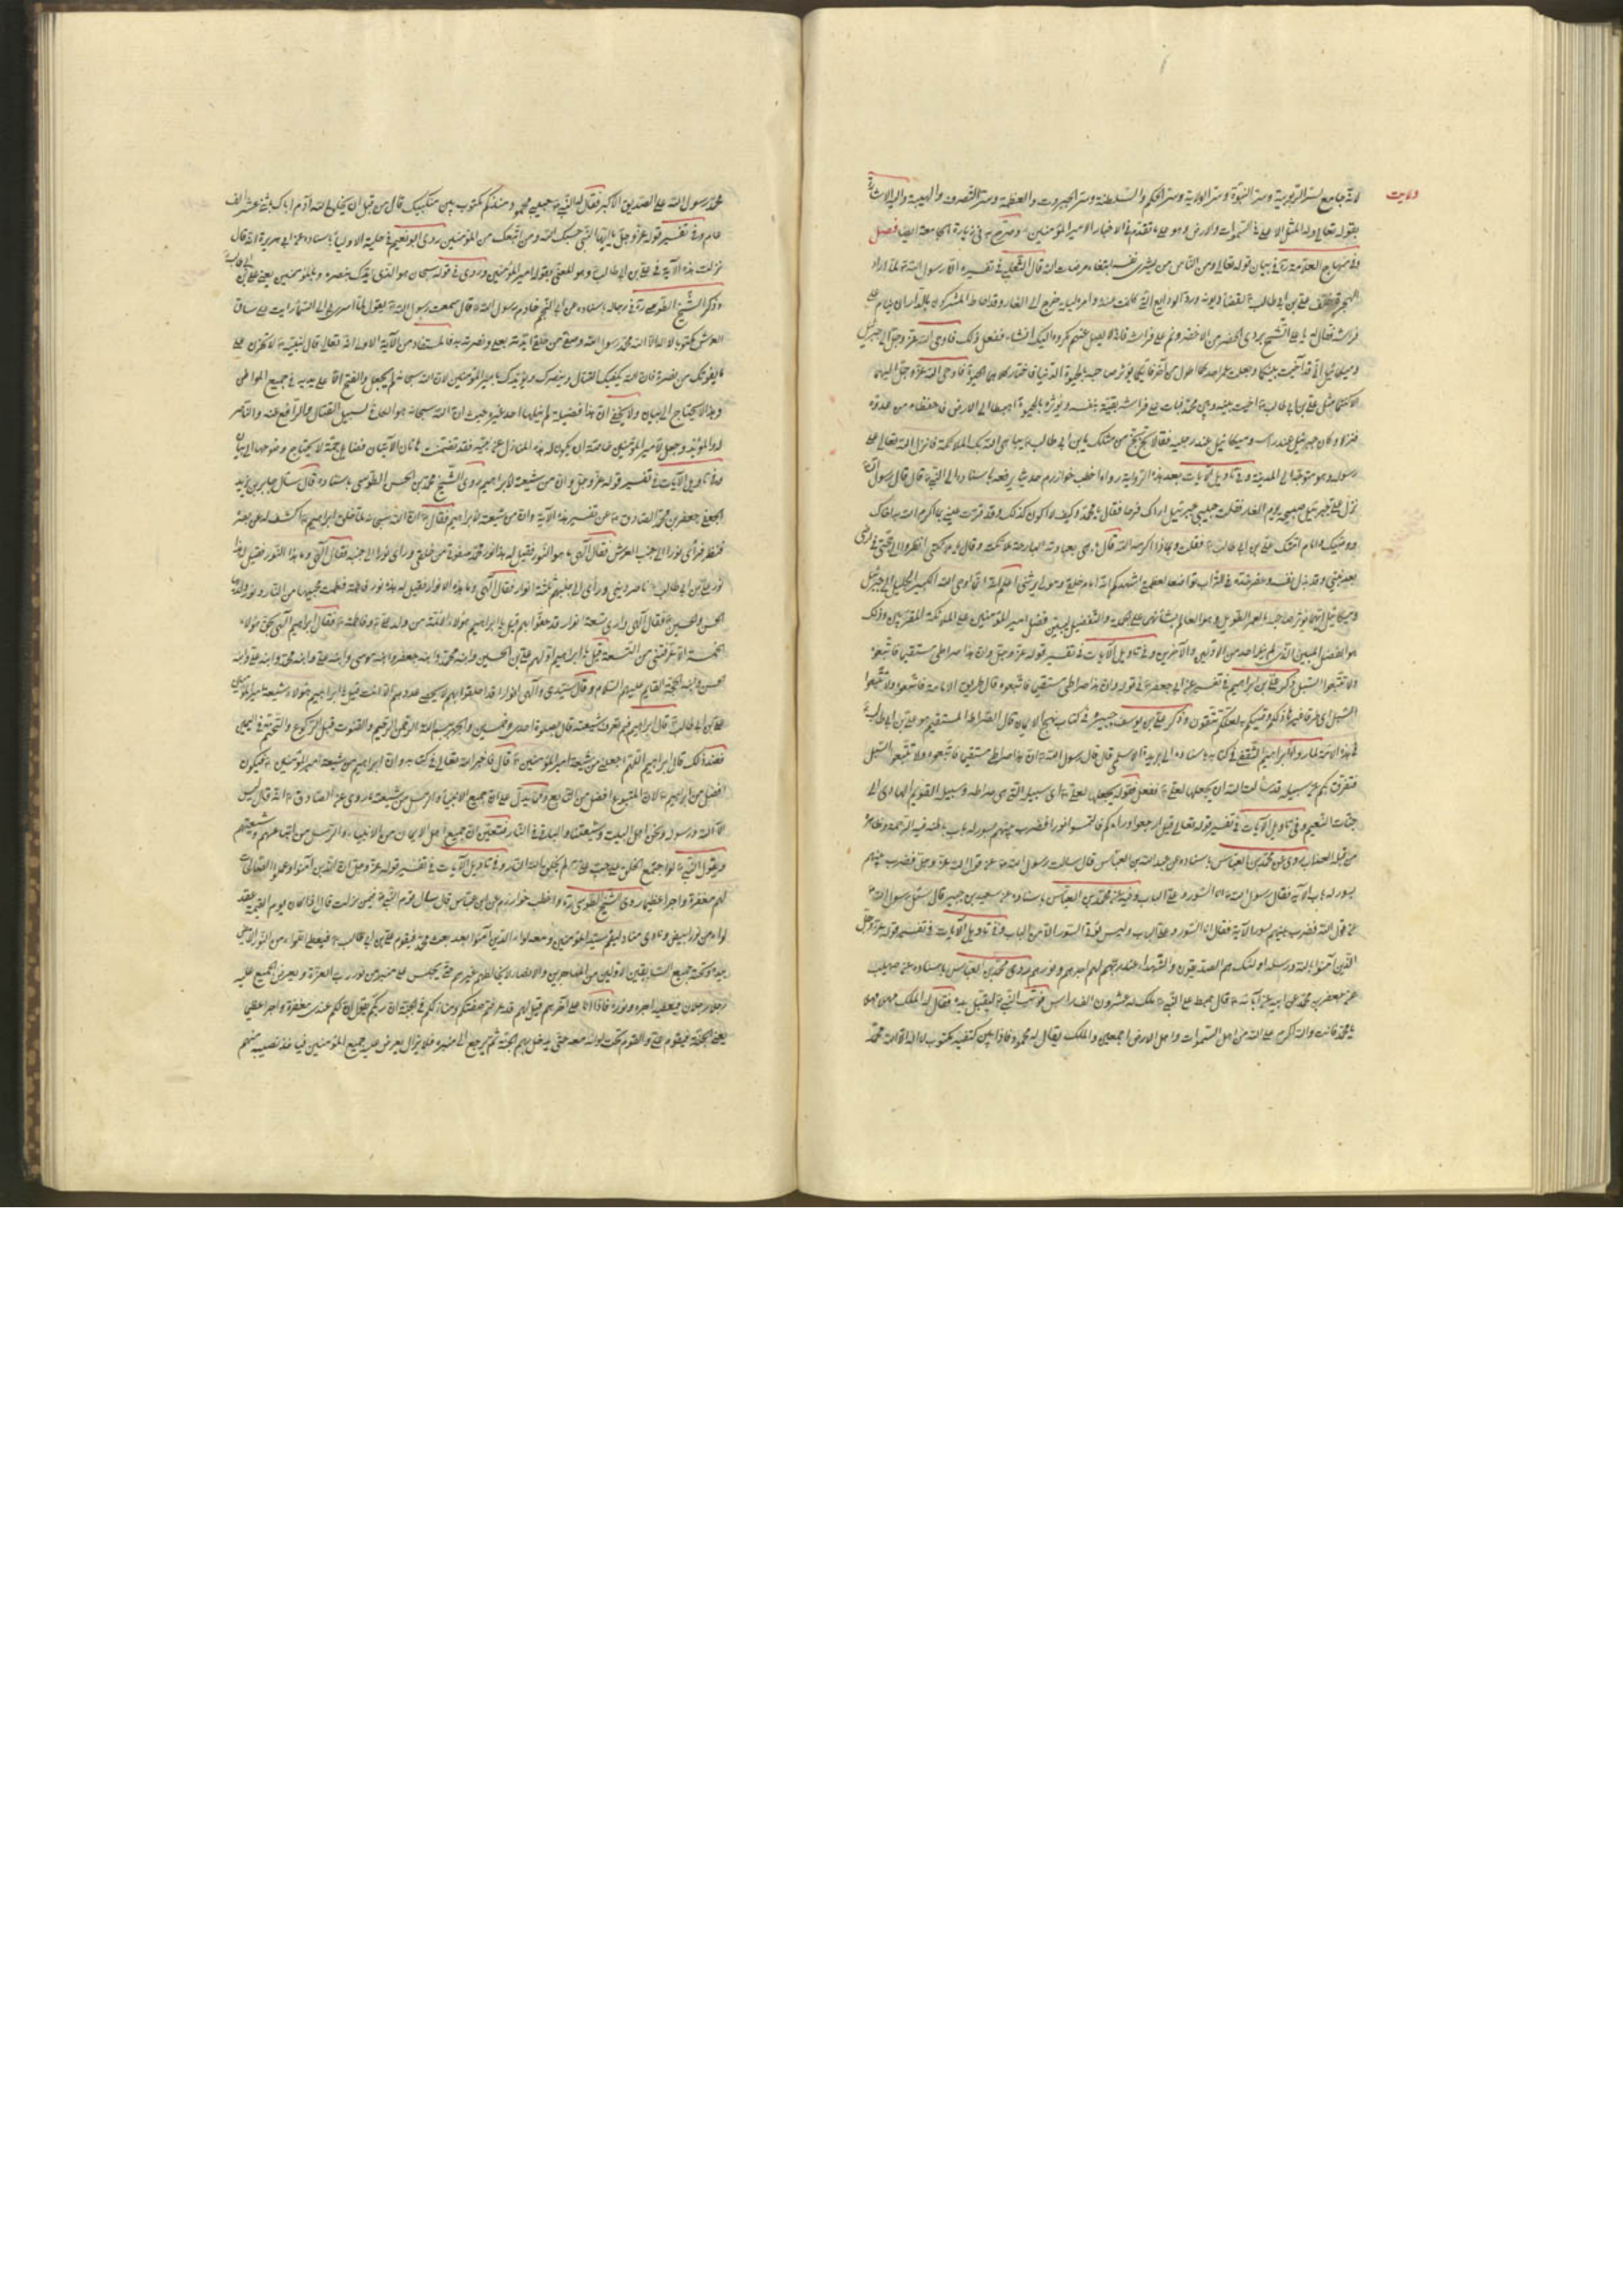 ولايت
لانه جامع لسر الربوبية وسر النبوة وسر الولاية وسر الحكم والسلطنة وسر الجبروت والعظمة وسر التصرف والهيبة واليه الاشارة
بقوله تعالى وله المثل الاعلى في السموات والارض وهو على ما تقدم في الاخبار الامير المؤمنين وصرح به في زيارة الجامعة ايضا فصل
وفي منهاج العلامة ره في بيان قوله تعالى ومن الناس من يشري نفسه ابتغاء مرضات الله قال الثعلبي في تفسيره ان رسول الله لما اراد
الهجرة خلف علي بن ابي طالب لقضاء ديونه ورد الودايع التي كانت عنده وامره ليلة خرج الى الغار وقد احاط المشركون بالدار ان ينام على
فراشه فقال له يا علي اتشح ببردي الحضرمي الاخضر ونم على فراشي فانه لا يصل منهم مكروه اليك انشاء ففعل ذلك فاوحى الله عز وجل الى جبرئيل
وميكائيل اني قد آخيت بينكما وجعلت عمر احدكما اطول من الآخر فايكما يؤثر صاحبه بالحيوة فاختار كلاهما الحيوة فاوحى الله عز وجل اليهما
الا كنتما مثل علي بن ابي طالب آخيت بينه وبين محمد فبات على فراشه يفديه بنفسه ويؤثره بالحيوة اهبطا الى الارض فاحفظاه من عدوه
فنزلا وكان جبرئيل عند راسه وميكائيل عند رجليه فقال بخ بخ من مثلك يا بن ابي طالب يباهي الله بك الملائكة فانزل الله تعالى على
رسوله وهو متوجه الى المدينة وفي تاويل الآيات بعد هذه الرواية رواه اخطب خوارزم حديثا يرفعه باسناده الى النبي قال قال رسول الله
نزل علي جبرئيل صبيحة يوم الغار فقلت حبيبي جبرئيل اراك فرحا فقال يا محمد وكيف لا اكون كذلك وقد قرت عيني بما اكرم الله به اخاك
ووصيك وامام امتك علي بن ابي طالب فقلت وبماذا اكرمه الله قال باهى بعبادته البارحة ملائكته وقال يا ملائكتي انظروا الى حجتي في ارضي
بعد نبيي وقد بذل نفسه وعفر خده في التراب تواضعا لعظمتي اشهدكم انه امام خلقي ومولى بريتي اعلم
هو الفضل المبين الذي لم ينله احد من الاولين والآخرين وفي تاويل الآيات في تفسير قوله عز وجل وان هذا صراطي مستقيما فاتبعوه
ولا تتبعوا السبل ذكر علي بن ابراهيم في تفسيره عن ابي جعفر في قوله وان هذا صراطي مستقيما فاتبعوه قال طريق الامامة فاتبعوه ولا تتبعوا
السبل اي طرقا غيرها ذلكم وصيكم به لعلكم تتقون وذكر علي بن يوسف بن جبير في كتاب نهج الايمان قال الصراط المستقيم هو علي بن ابي طالب
في هذه الآية لما رواه ابراهيم الثقفي في كتابه باسناده الى ابي بريدة الاسلمي قال قال رسول الله ان هذا صراطي مستقيما فاتبعوه ولا تتبعوا السبل
فتفرق بكم عن سبيله قد سالت الله ان يجعلها لعلي ففعل فقوله يجعلها لعلي اي سبيله التي هي صراطه وسبيله القويم الهادي الى
جنات النعيم وفي تاويل الآيات في تفسير قوله تعالى قيل ارجعوا وراءكم فالتمسوا نورا فضرب بينهم بسور له باب باطنه فيه الرحمة وظاهره
من قبله العذاب روي عن محمد بن العباس باسناده عن عبد الله بن العباس قال سالت رسول الله عن قول الله عز وجل فضرب بينهم
بسور له باب الآية فقال رسول الله انا السور وعلي الباب وفيه عن محمد بن العباس باسناده عن سعيد بن جبير قال سئل رسول الله
عن قول الله فضرب بينهم بسور الآية فقال انا السور وعلي الباب وليس يؤتى السور الا من الباب وفي تاويل الآيات في تفسير قوله عز وجل
الذين آمنوا بالله ورسله اولئك هم الصديقون والشهداء عند ربهم لهم اجرهم ونورهم روى محمد بن العباس باسناده عن
عن جعفر بن محمد عن ابيه عن آبائه قال هبط على النبي ملك له عشرون الف راس فوثب النبي ليقبل يده فقال له الملك مهلا مهلا
يا محمد فانت والله اكرم على الله من اهل السموات واهل الارض اجمعين والملك يقال له محمود فاذا بين كتفيه مكتوب لا اله الا الله محمد
محمد رسول الله علي الصديق الاكبر فقال له النبي حبيبي محمود منذ كم مكتوب بين منكبيك قال من قبل ان يخلق الله آدم اباك باثني عشر الف
عام وفي تفسير قوله عز وجل يا ايها النبي حسبك الله ومن اتبعك من المؤمنين روى ابو نعيم في حلية الاولياء باسناده عن ابي هريرة انه قال
نزلت هذه الآية في علي بن ابي طالب وهو المعني بقوله امير المؤمنين وروى في قوله سبحانه هو الذي ايدك بنصره وبالمؤمنين يعني علي بن ابي طالب
وذكر الشيخ الطوسي ره في رجاله باسناده عن خادم رسول الله قال سمعت رسول الله يقول لما اسري بي الى السماء رايت على ساق
العرش مكتوبا لا اله الا الله محمد رسول الله وصفيي من خلقي ايدته بعلي ونصرته به فالمستفاد من الآية الاولى ان الله تعالى قال لنبيه لا تحزن على
ما يفوتك من نصرة فان الله يكفيك القتال وينصرك ويؤيدك بامير المؤمنين لان الله سبحانه لم يجعل الفتح الا على يديه في جميع المواطن
وهذا لا يحتاج الى بيان ولا يخفى ان هذا فضيلة لم ينلها احد غيره حيث ان الله سبحانه هو
وفي تاويل الآيات في تفسير قوله عز وجل وان من شيعته لابراهيم روى الشيخ محمد بن الحسن الطوسي باسناده قال سئل جابر بن يزيد
الجعفي جعفر بن محمد الصادق عن تفسير هذه الآية وان من شيعته لابراهيم فقال ان الله سبحانه لما خلق ابراهيم كشف له عن بصره
فنظر فراى نورا الى جنب العرش فقال الهي ما هو النور فقيل له هذا نور محمد صفوتي من خلقي وراى نورا الى جنبه فقال الهي وما هذا النور فقيل له هذا
نور علي بن ابي طالب ناصر ديني وراى الى جنبهم ثلثة انوار فقال الهي وما هذه الانوار فقيل له هذه نور فاطمة فطمت محبيها من النار ونور ولديها
الحسن والحسين فقال الهي وارى تسعة انوار قد حفوا بهم قيل يا ابراهيم هؤلاء الائمة من ولد علي وفاطمة فقال ابراهيم الهي بحق هؤلاء
الخمسة الا عرفتني من التسعة قيل يا ابراهيم اولهم علي بن الحسين وابنه محمد وابنه جعفر وابنه موسى وابنه علي وابنه محمد وابنه علي وابنه
الحسن وابنه الحجة القايم عليهم السلام وقال سيدي والهي ارى انوارا قد احدقوا بهم لا يحصي عددهم الا انت قيل يا ابراهيم هؤلاء شيعة امير المؤمنين
علي بن ابي طالب قال ابراهيم فبم تعرف شيعته قال بصلوة احدى وخمسين والجهر ببسم الله الرحمن الرحيم والقنوت قبل الركوع والتختم في اليمين
فعند ذلك قال ابراهيم اللهم اجعلني من شيعة امير المؤمنين قال فاخبر الله تعالى في كتابه وان ابراهيم من شيعة امير المؤمنين فيكون
افضل من ابراهيم لان المتبوع افضل من التابع ومما يدل على ان جميع الانبياء والرسل من شيعته ما روي عن الصادق انه قال ليس
الا الله ورسوله ونحن اهل البيت وشيعتنا والباقي في النار فتعين ان جميع اهل الايمان من الانبياء والرسل من اتباعهم وشيعتهم
ويقول النبي لو اجتمع الخلق على حب علي لم يخلق الله النار وفي تاويل الآيات في تفسير قوله عز وجل ان الذين آمنوا وعملوا الصالحات
لهم مغفرة واجرا عظيما روى الشيخ الطوسي ره واخطب خوارزم عن ابن عباس قال سال قوم النبي فيمن نزلت قال اذا كان يوم القيمة عقد
لواء من نور ابيض ونادى مناد ليقم سيد المؤمنين ومعه الذين آمنوا بعد بعث محمد فيقوم علي بن ابي طالب فيعطى اللواء من النور الابيض
بيده وتحته جميع السابقين الاولين من المهاجرين والانصار لا يخالطهم غيرهم حتى يجلس على منبر من نور رب العزة ويعرض الجميع عليه
رجلا رجلا فيعطيه اجره ونوره فاذا اتى على آخرهم قيل لهم قد عرفتم صفتكم ومنازلكم في الجنة ان ربكم يقول ان لكم عندي مغفرة واجرا عظيما
يعني الجنة فيقوم علي والقوم تحت لوائه معه حتى يدخل بهم الجنة ثم يرجع الى منبره فلا يزال يعرض عليه جميع المؤمنين فياخذ نصيبه منهم